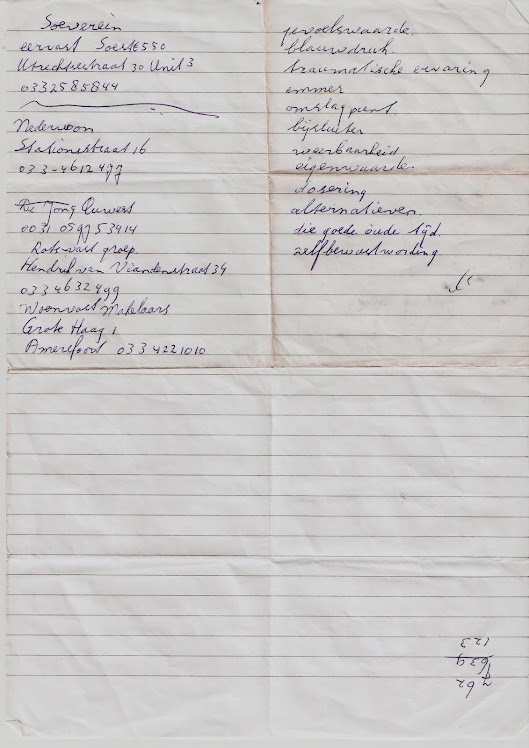 Soeverein
eervast Soest E 550
Utrechtsestraat 30 Unit 3
0332585844
Nederwoon
Stationsstraat 16
033-4612499
De Jong
0031 0597 53414
Rots-vast groep
Hendrik van Viandenstraat 34
0334632499
Woonvast Makelaars
Grote Haag 1
Amersfoord 033 4221010
gevoelswaarde
blauwdruk
traumatische ervaring
emmer
omslagpunt
bijsluiter
weerbaarheid
eigenwaarde
dosering
alternatieven
die goede oude tijd
zelfbewustwording
762
639
123